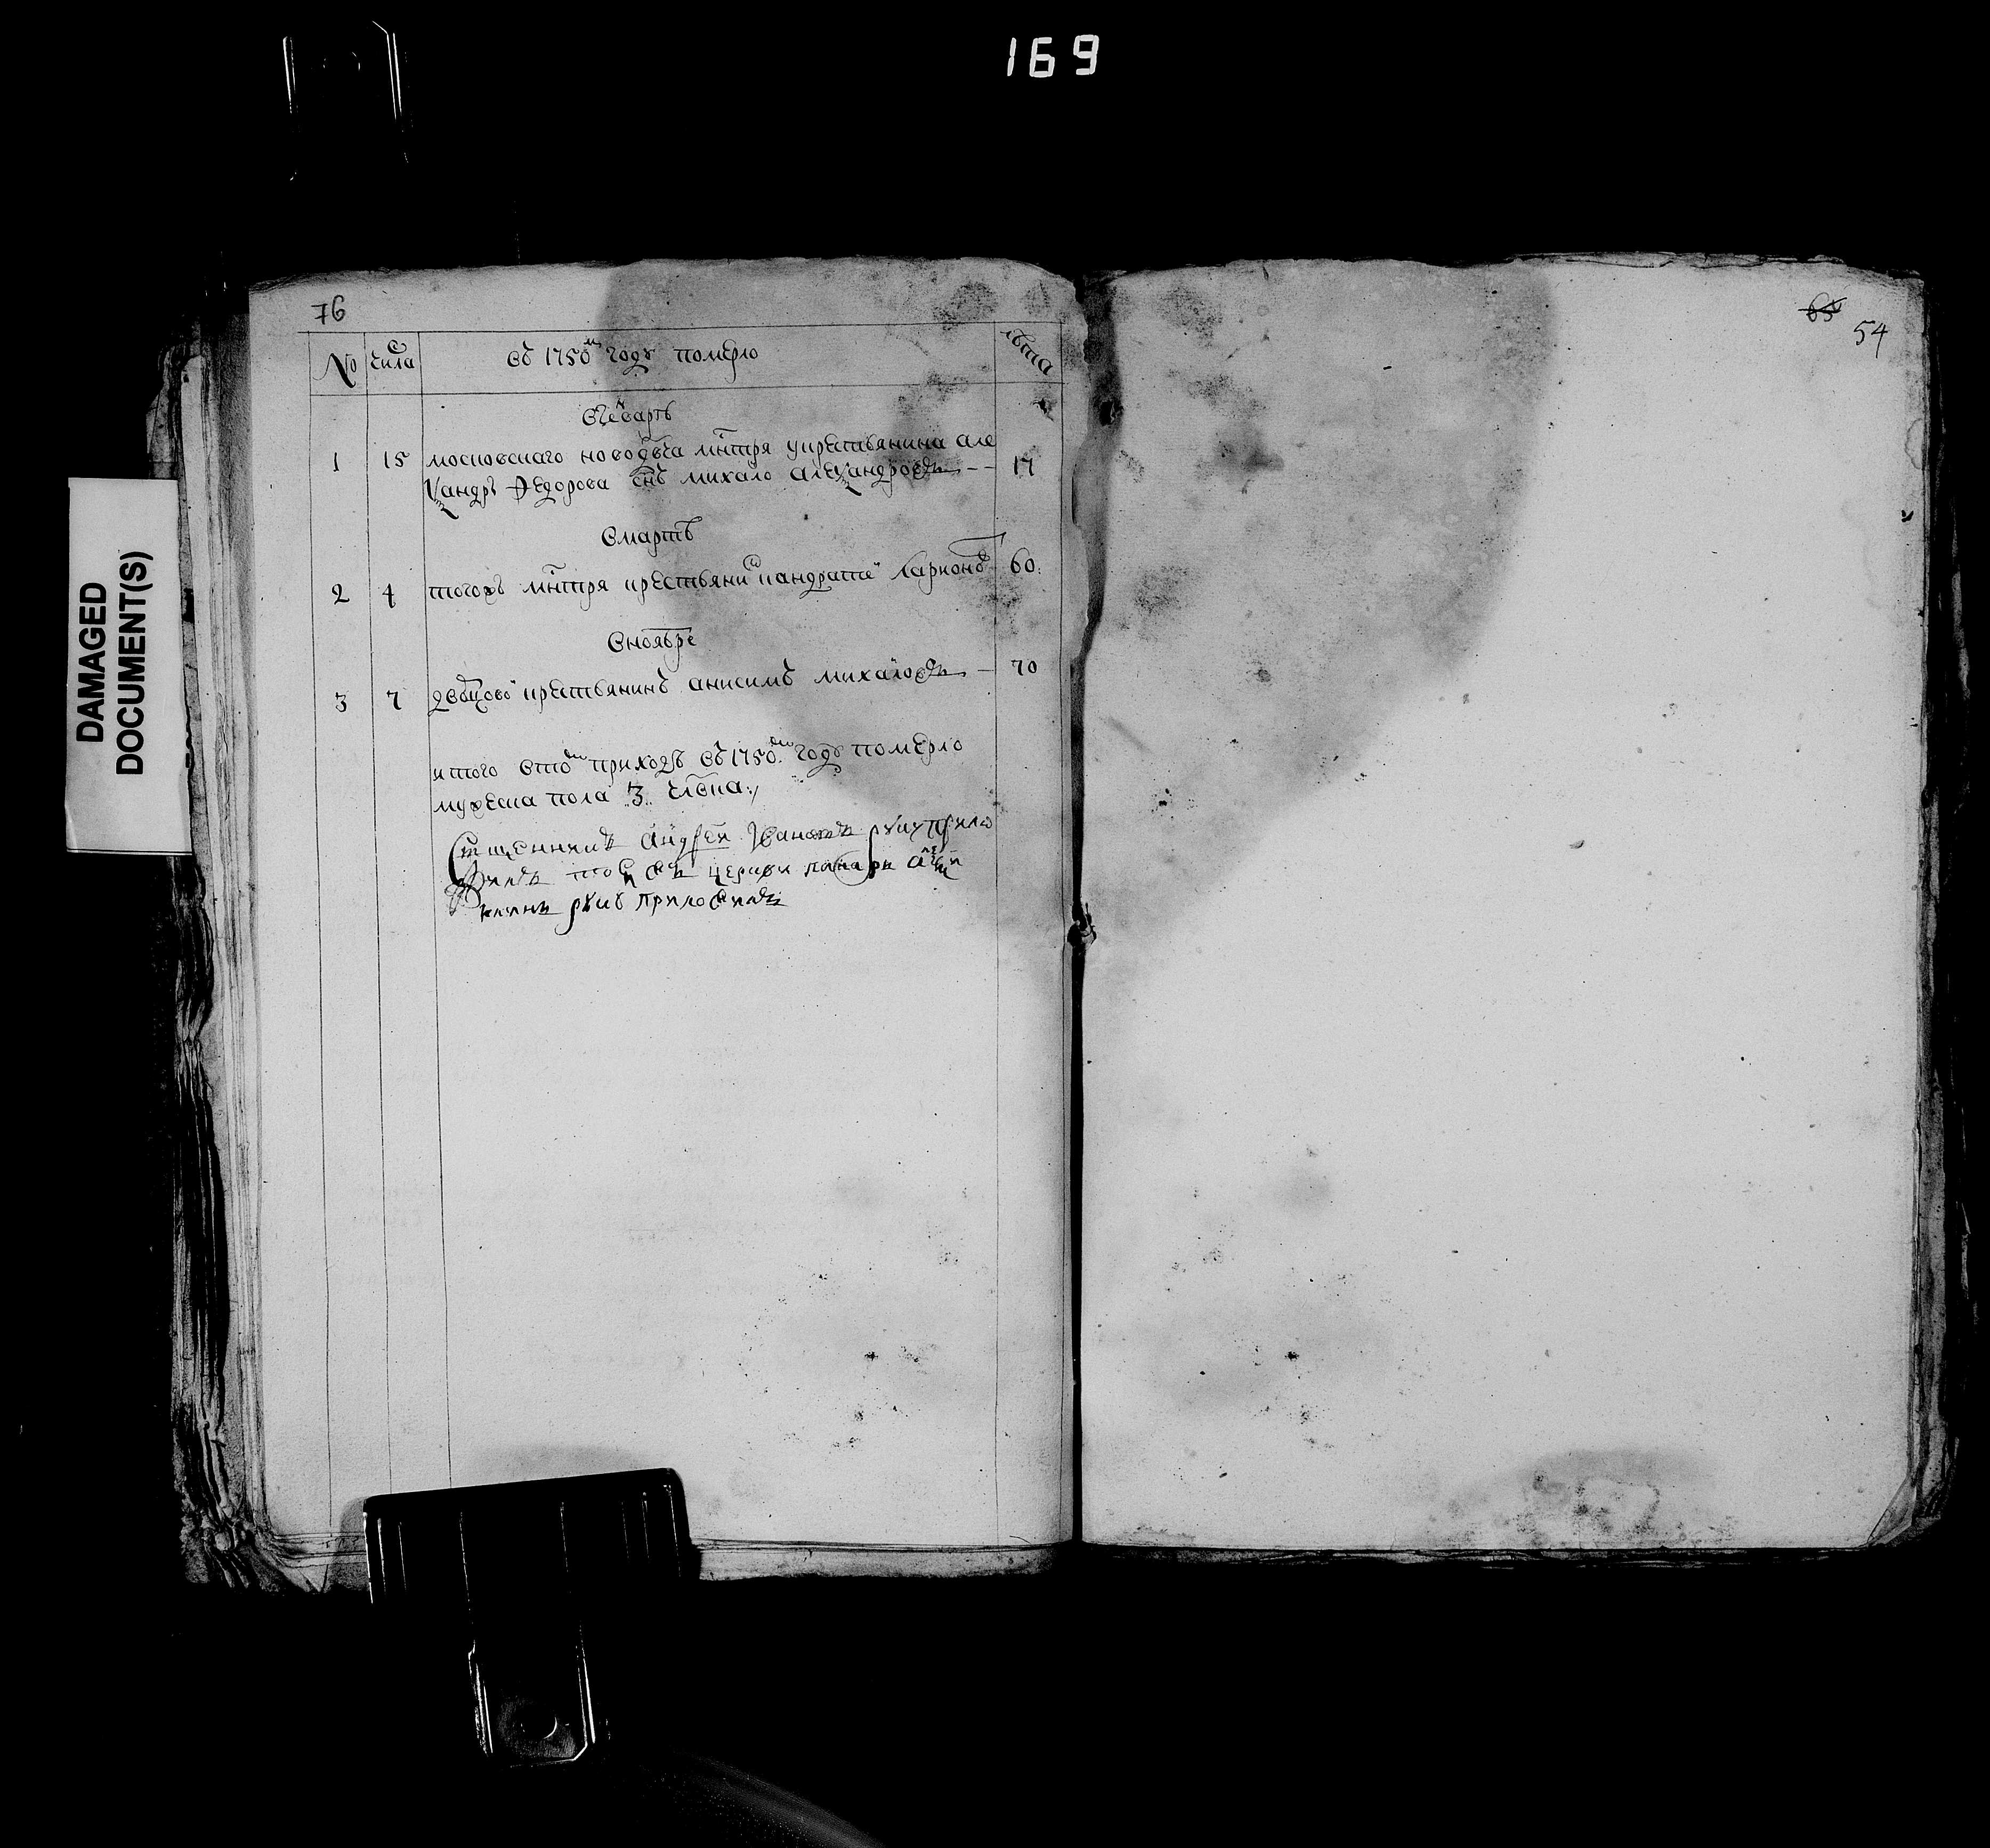 169
DAMAGED
DOCUMENT(S)
76
65
54
№ числа въ 1750м году померло лѣта
вгенварѣ
1 15 московскаго новодѣвча мнтря укрестьянина але
ѯандръ Федорова снъ михало алеѯандровъ -- 17
вмартѣ
2 4 тогожъ мнтря крестьянинъ кандратеи ларионовъ 60:
вноябре
3 7 крестьянинъ анисимъ михаловъ - 70
итого втом приходѣ въ 1750м году померло
мужеска пола 3 члвка:
Священникъ Андреи Ивановъ руку прило
жилъ тои церкви панамарь
руку приложилъ